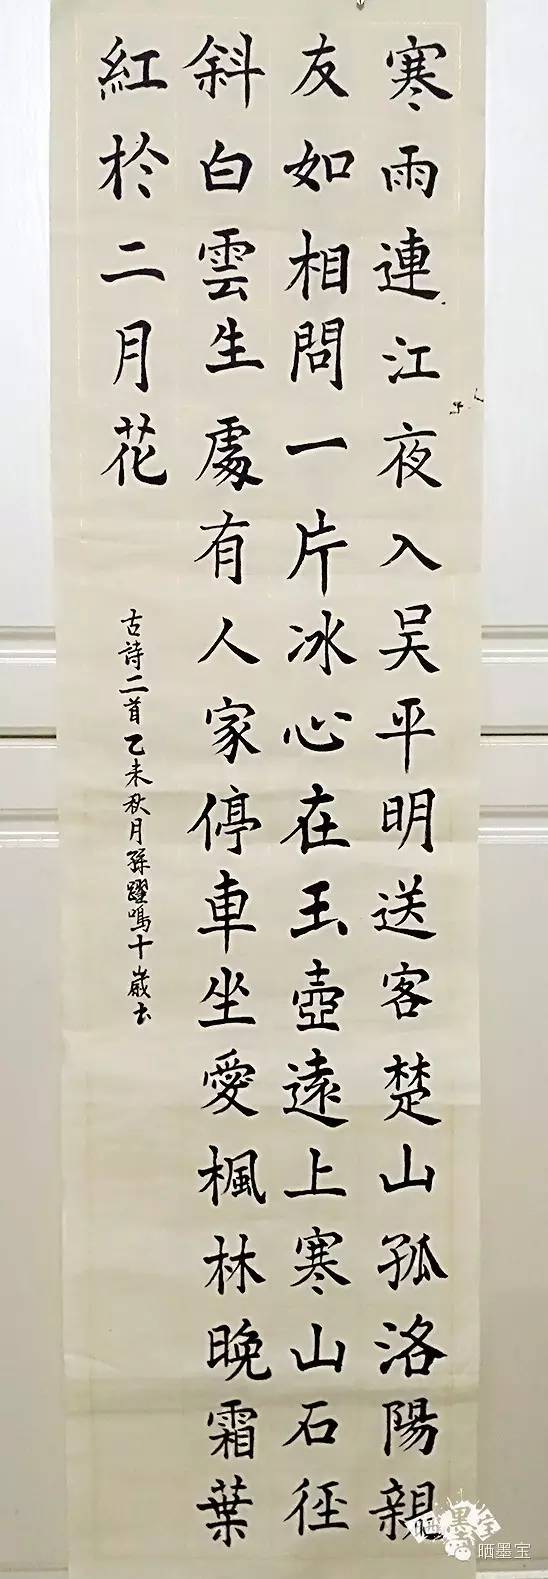 寒雨連江夜入吴平明送客楚山孤洛陽親
友如相問一片冰心在玉壺遠上寒山石径
斜白雲生處有人家停車坐愛楓林晚霜葉
紅於二月花
古詩二首乙未秋月孫躍鳴十歲书
晒墨宝